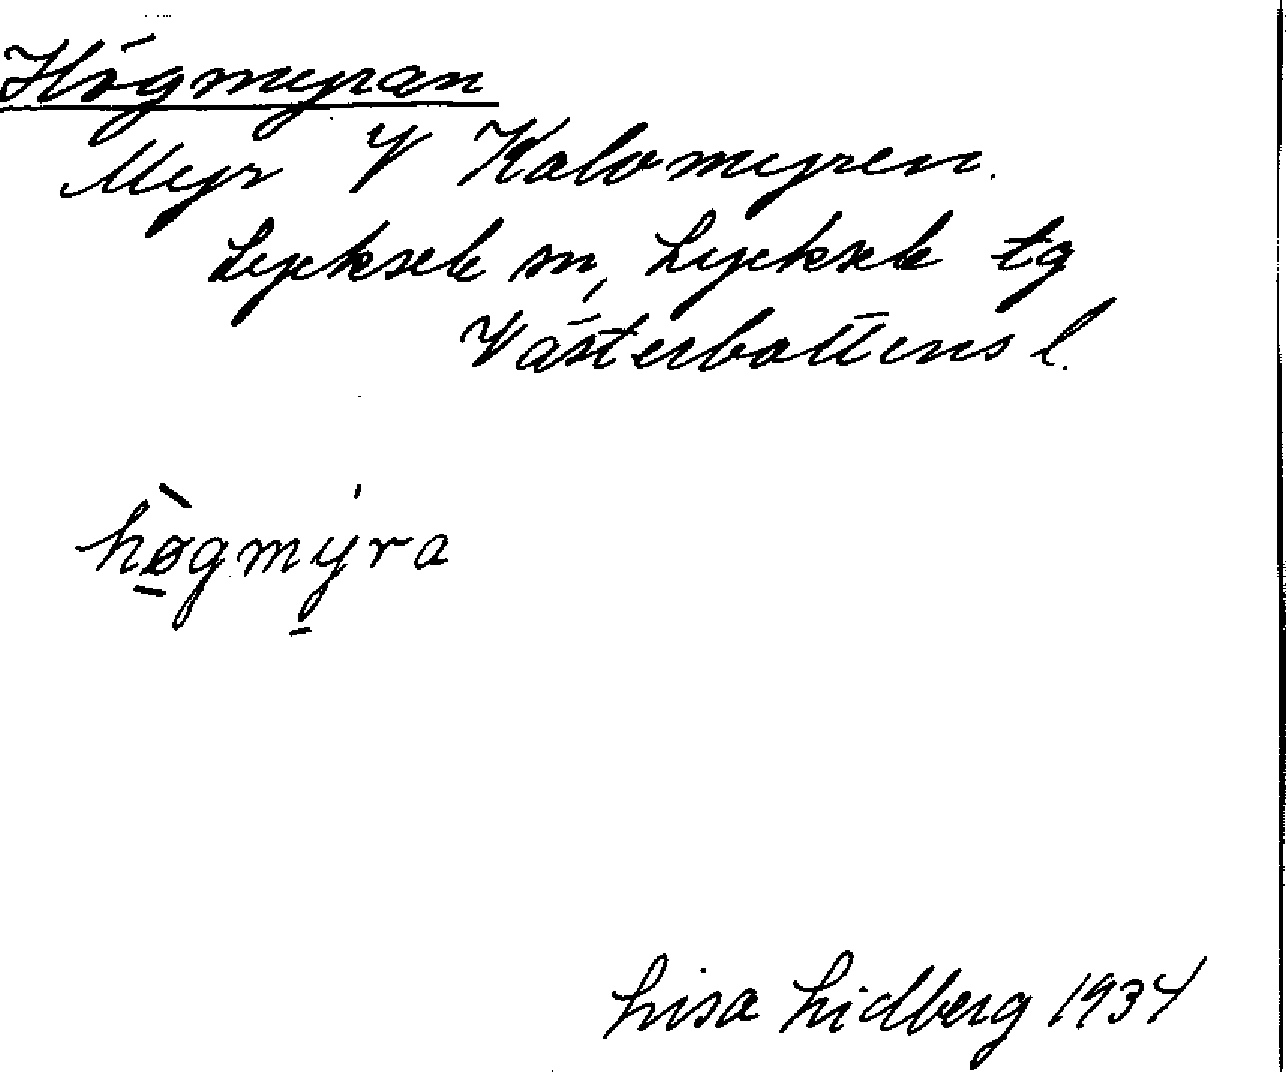 Högmyran
Myr V Kalvmyren.
Lycksele sn, Lycksele tg
Västerbottens l.
hø̀gmýra
Lisa Lidberg 1934